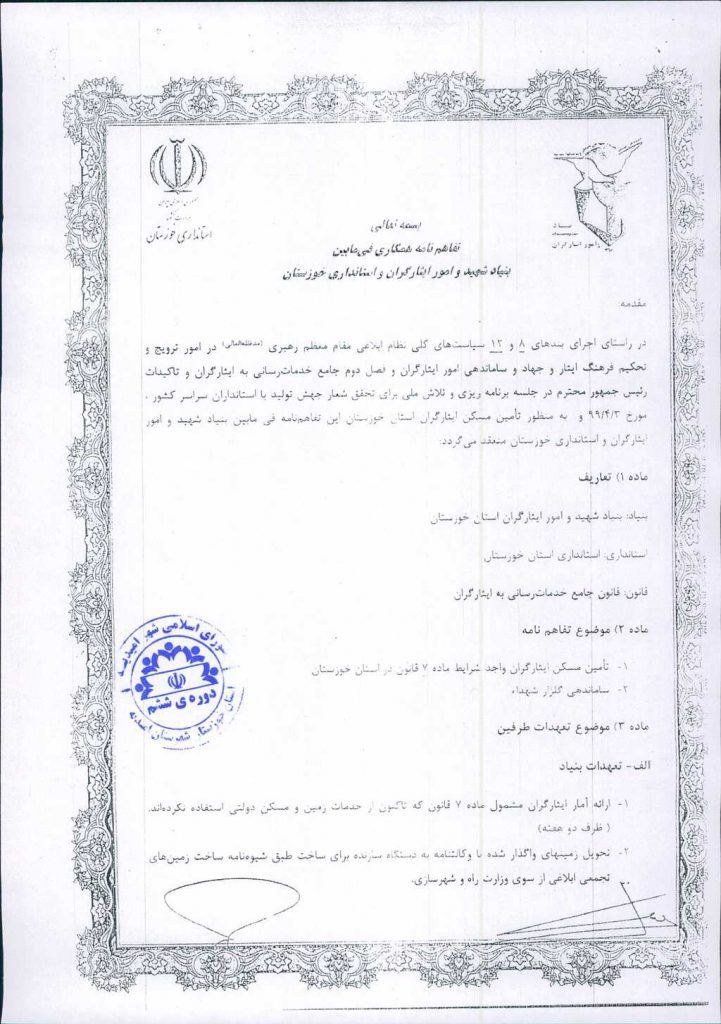 بسمه تعالی
تفاهم نامه همکاری فی مابین
بنیاد شهید و امور ایثارگران و استانداری خوزستان
استانداری خوزستان
بنیاد
شهید
و امور ایثارگران
مقدمه:
در راستای اجرای بندهای ۸ و ۱۲ سیاست‌های کلی نظام ابلاغی مقام معظم رهبری (مدظله‌العالی) در امور ترویج و
تحکیم فرهنگ ایثار و جهاد و ساماندهی امور ایثارگران و فصل دوم جامع خدمات‌رسانی به ایثارگران و تاکیدات
رئیس جمهور محترم در جلسه برنامه ریزی و تلاش ملی برای تحقق شعار جهش تولید با استانداران سراسر کشور ،
مورخ ۹۹/۴/۳ و به منظور تأمین مسکن ایثارگران استان خوزستان این تفاهم‌نامه فی مابین بنیاد شهید و امور
ایثارگران و استانداری خوزستان منعقد می‌گردد:
ماده ۱) تعاریف
بنیاد: بنیاد شهید و امور ایثارگران استان خوزستان
استانداری: استانداری استان خوزستان
قانون: قانون جامع خدمات‌رسانی به ایثارگران
ماده ۲) موضوع تفاهم نامه
۱- تأمین مسکن ایثارگران واجد شرایط ماده ۷ قانون در استان خوزستان
۲- ساماندهی گلزار شهداء
ماده ۳) موضوع تعهدات طرفین
الف- تعهدات بنیاد
۱- ارائه آمار ایثارگران مشمول ماده ۷ قانون که تاکنون از خدمات زمین و مسکن دولتی استفاده نکرده‌اند.
( ظرف دو هفته)
۲- تحویل زمینهای واگذار شده با وکالتنامه به دستگاه سازنده برای ساخت طبق شیوه‌نامه ساخت زمین‌های
تجمعی ابلاغی از سوی وزارت راه و شهرسازی.
شورای اسلامی شهر امیدیه
دوره ی ششم
استان خوزستان شهرستان امیدیه